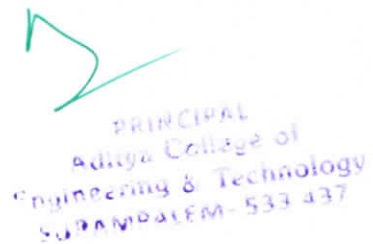 PRINCIPAL
Aditya College of
Engineering & Technology
SURAMPALEM- 533 437